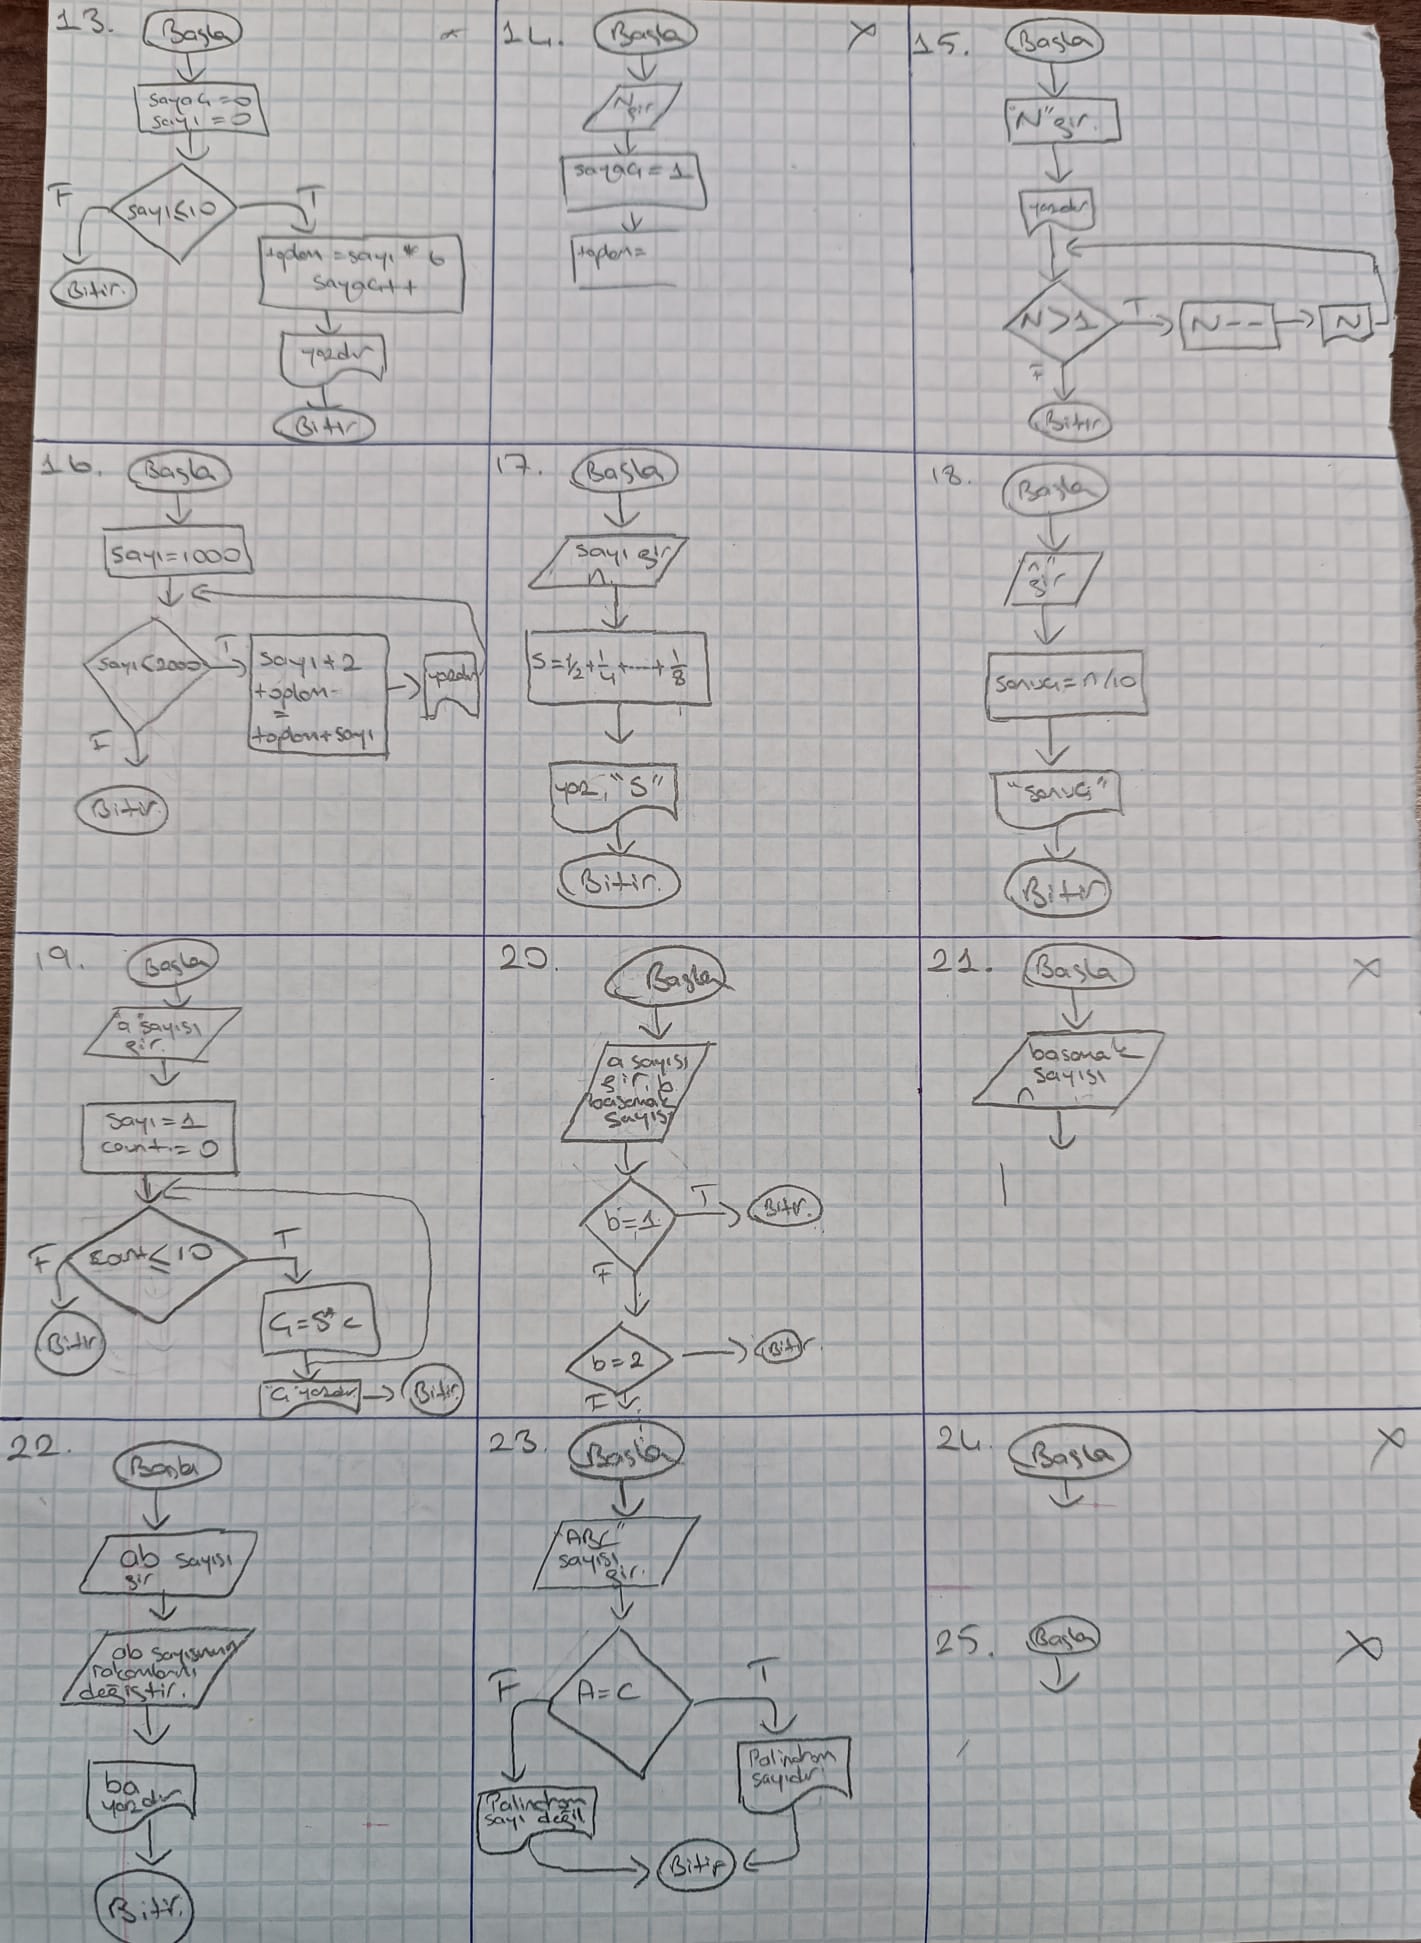 13.
Başla
sayaç=0
sayı=0
sayı≤10
F
T
toplam=sayı*6
sayaç++
yazdır
Bitir.
Bitir
14.
Başla
X
N gir
sayaç=1
toplam=
15.
Başla
"N" gir.
yazdır
N>1
T
N--
N
F
Bitir
16.
Başla
sayı=1000
sayı<2000
T
sayı+2
toplam
=
toplam+sayı
yazdır
F
Bitir.
17.
Başla
sayı gir
n
S=1/2+1/4+....+1/8
yaz, "S"
Bitir.
18.
Başla
"n"
gir
sonuç=n/10
"sonuç"
Bitir
19.
Başla
"a" sayısı
gir.
sayı=1
count=0
count≤10
F
T
Ç=S*c
Bitir
"Ç" yazdır
Bitir
20.
Başla
a sayısı
gir, b
basamak
sayısı
b=1
T
Bitir.
F
b=2
Bitir.
F
21.
Başla
X
basamak
sayısı
n
22.
Başla
ab sayısı
gir
ab sayısının
rakamlarını
değiştir.
ba
yazdır
Bitir.
23.
Başla
"ABC"
sayısı
gir.
A=C
F
T
Palindrom
sayı değil
Palindrom
sayıdır.
Bitir
24.
Başla
X
25.
Başla
X